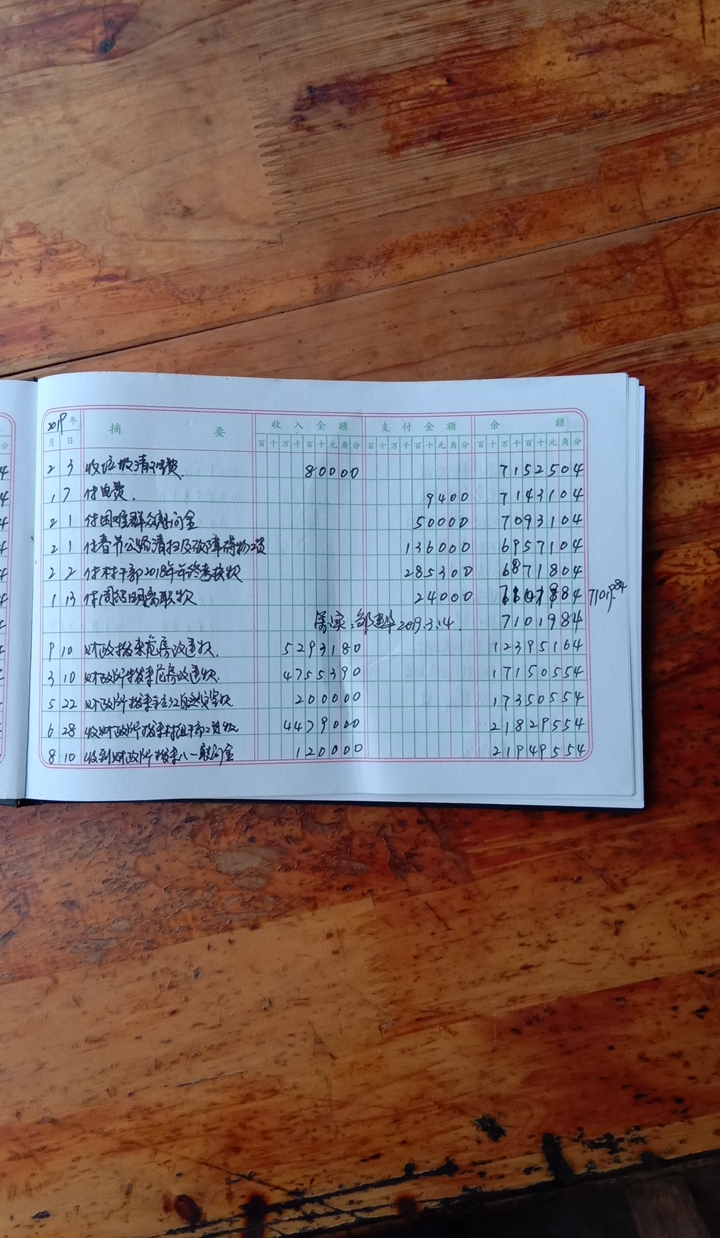 2019年 摘 要 收 入 金 额 支 付 金 额 余 额
月 日 百 十 万 千 百 十 元 角 分 百 十 万 千 百 十 元 角 分 百 十 万 千 百 十 元 角 分
2 3 收垃圾清理费 80000 7152504
1 7 付电费. 9400 7143104
2 1 付困难群众慰问金 50000 7093104
2 1 付春节公路清扫及故障 136000 6957104
2 2 付村干部2018年年终考核款 285300 6871804
1 13 付 款 24000 84 7101984
2019.3.14. 7101984
9 10 财政拨来危房改造款. 5293180 12395164
3 10 财政所拨来危房改造款. 4755390 17150554
5 22 财政所拨来 款 200000 17350554
6 28 收财政所拨来村组干部工资款 4479000 21829554
8 10 收到财政所拨来八一慰问金 120000 21949554